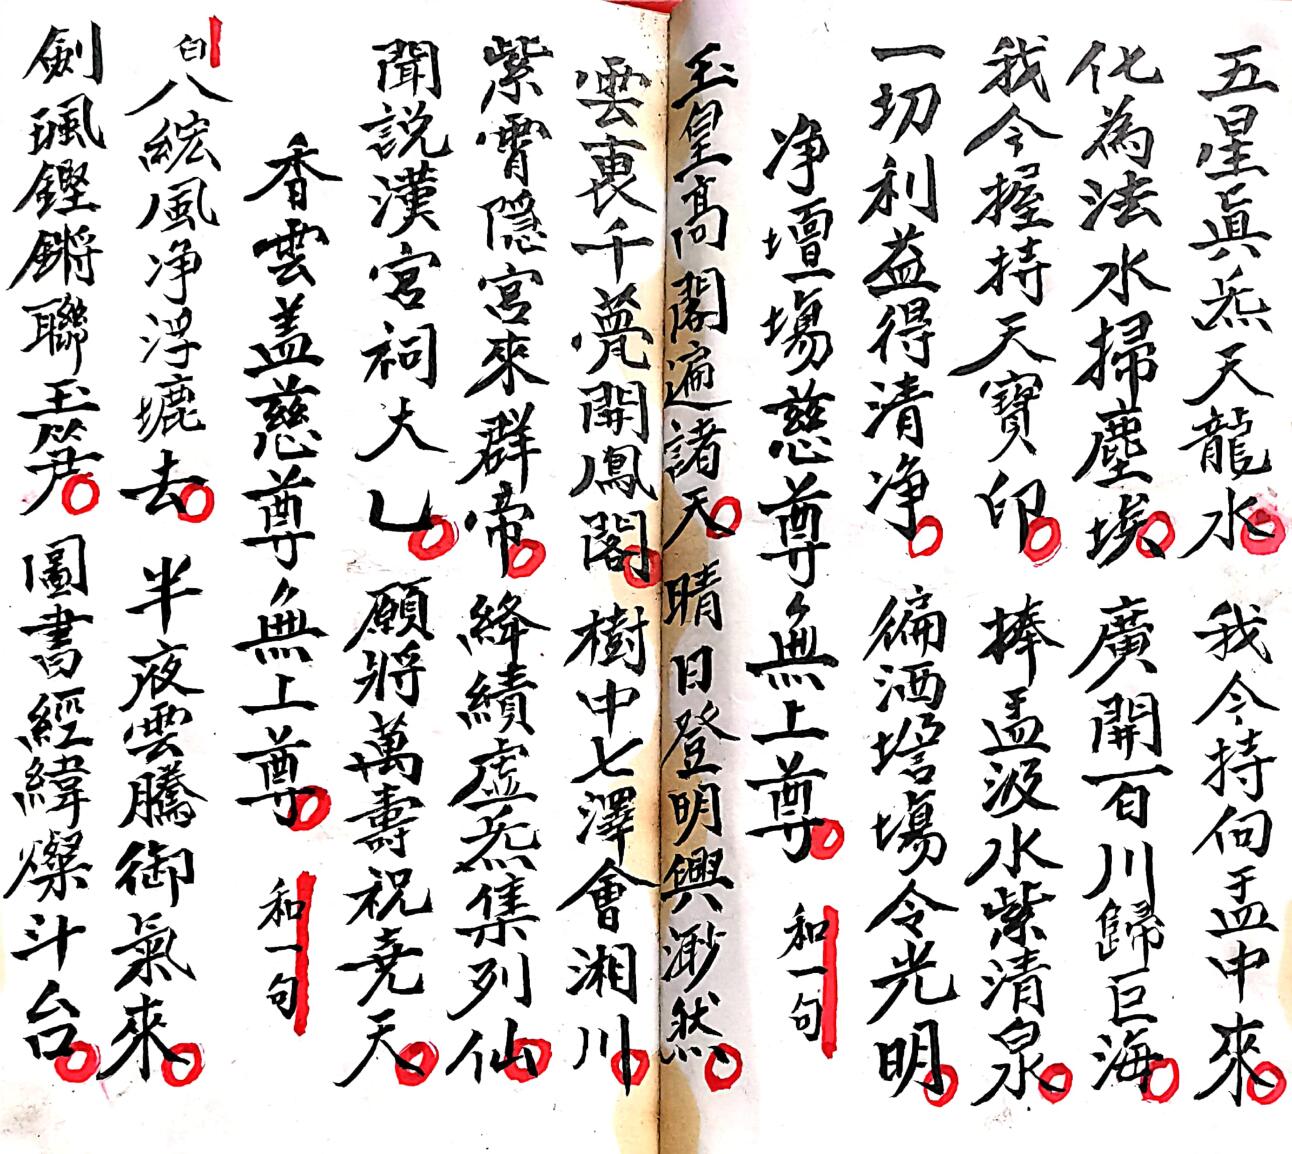 五星真炁天龍水 我今持向盂中來
化為法水掃塵埃 廣開百川歸巨海
我今握持天寶印 捧盂汲水紫清泉
一切利益得清净 徧洒壇場令光明
净壇場慈尊無上尊 和一句
玉皇高閣遍諸天 晴日登明興渺然
雲裏千甍開鳳閣 樹中七澤會湘川
紫霄隱宮來群帝 絳績虛炁集列仙
聞説漢宮祠太乙 願將萬壽祝堯天
香雲盖慈尊無上尊 和一句
白 八紘風净浮去 半夜雲騰御氣來
劍珮鏗鏘聯玉笋 圖書經緯燦斗台